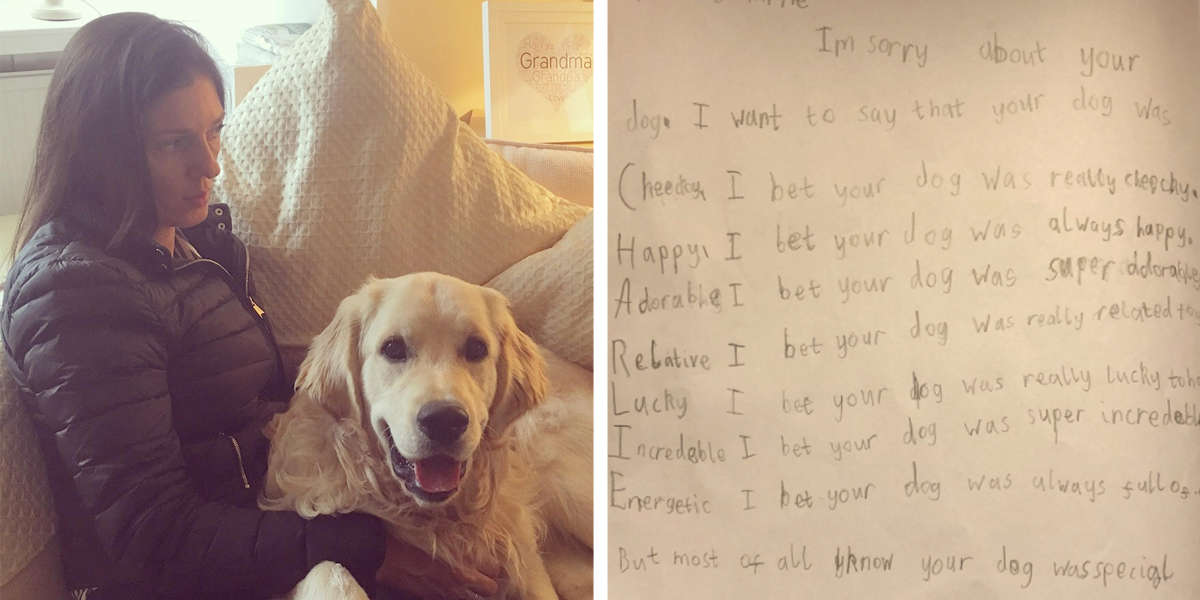 Grandma
I'm sorry about your
dog. I want to say that your dog was
Cheeky, I bet your dog was really cheechy.
Happy, I bet your dog was always happy.
Adorable I bet your dog was super adorable
Relative I bet your dog was really related to
Lucky I bet your dog was really lucky to
Incredeble I bet your dog was super incredeble
Energetic I bet your dog was always full of
But most of all I know your dog was special